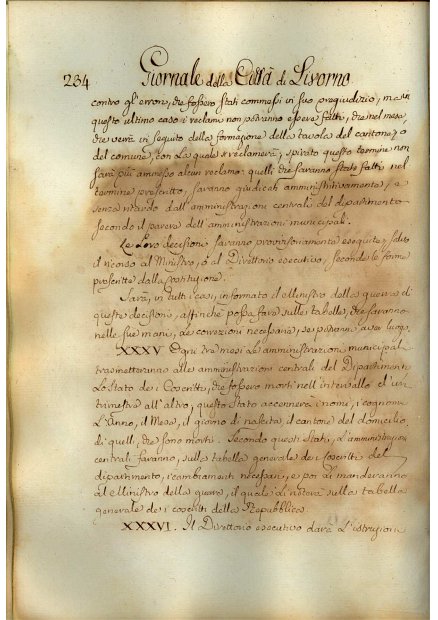 234 Giornale della Città di Livorno
contro gl'errori, che fossero stati commessi in suo pregiudizio; ma in
questo ultimo caso i reclami non potranno essere fatti, che nel mese,
che verrà in seguito della formazione della tavola del cantone, o
del comune, con la quale si reclamerà; spirato questo termine non
sarà più ammesso alcun reclamo; quelli che saranno stati fatti nel
termine prescritto, saranno giudicati amministrativamente, e
senza ritardo dall'amministrazioni centrali del dipartimento
secondo il parere dell'amministrazioni municipali.
Le Loro decisioni saranno provisoriamente eseguite, salvo
il ricorso al Ministro, o al Direttorio esecutivo, secondo le forme
prescritte dalla costituzione.
Sarà, in tutti i casi, informato il Ministro della guerra di
queste decisioni, affinchè possa fare sulle tabelle, che saranno
nelle sue mani, le correzioni necessarie, se potranno aver luogo.
XXXV Ogni tre mesi le amministrazioni municipali
trasmetteranno alle amministrazioni centrali del Dipartimento
Lo Stato de i Coscritti, che fossero morti nell'intervallo d'un
trimestre all'altro; questo Stato accennerà i nomi, i cognomi
L'Anno, il Mese, il giorno di nascita, il cantone del domicilio
di quelli, che sono morti. Secondo questi Stati, L'amministrazioni
centrali faranno, sulla tabella generale de i coscritti del
dipartimento, i cambiamenti necessari, e poi li manderanno
al Ministro della guerra, il quale li noterà sulla tabella
generale de i coscritti della Repubblica.
XXXVI. Il Direttorio esecutivo darà L'istruzioni